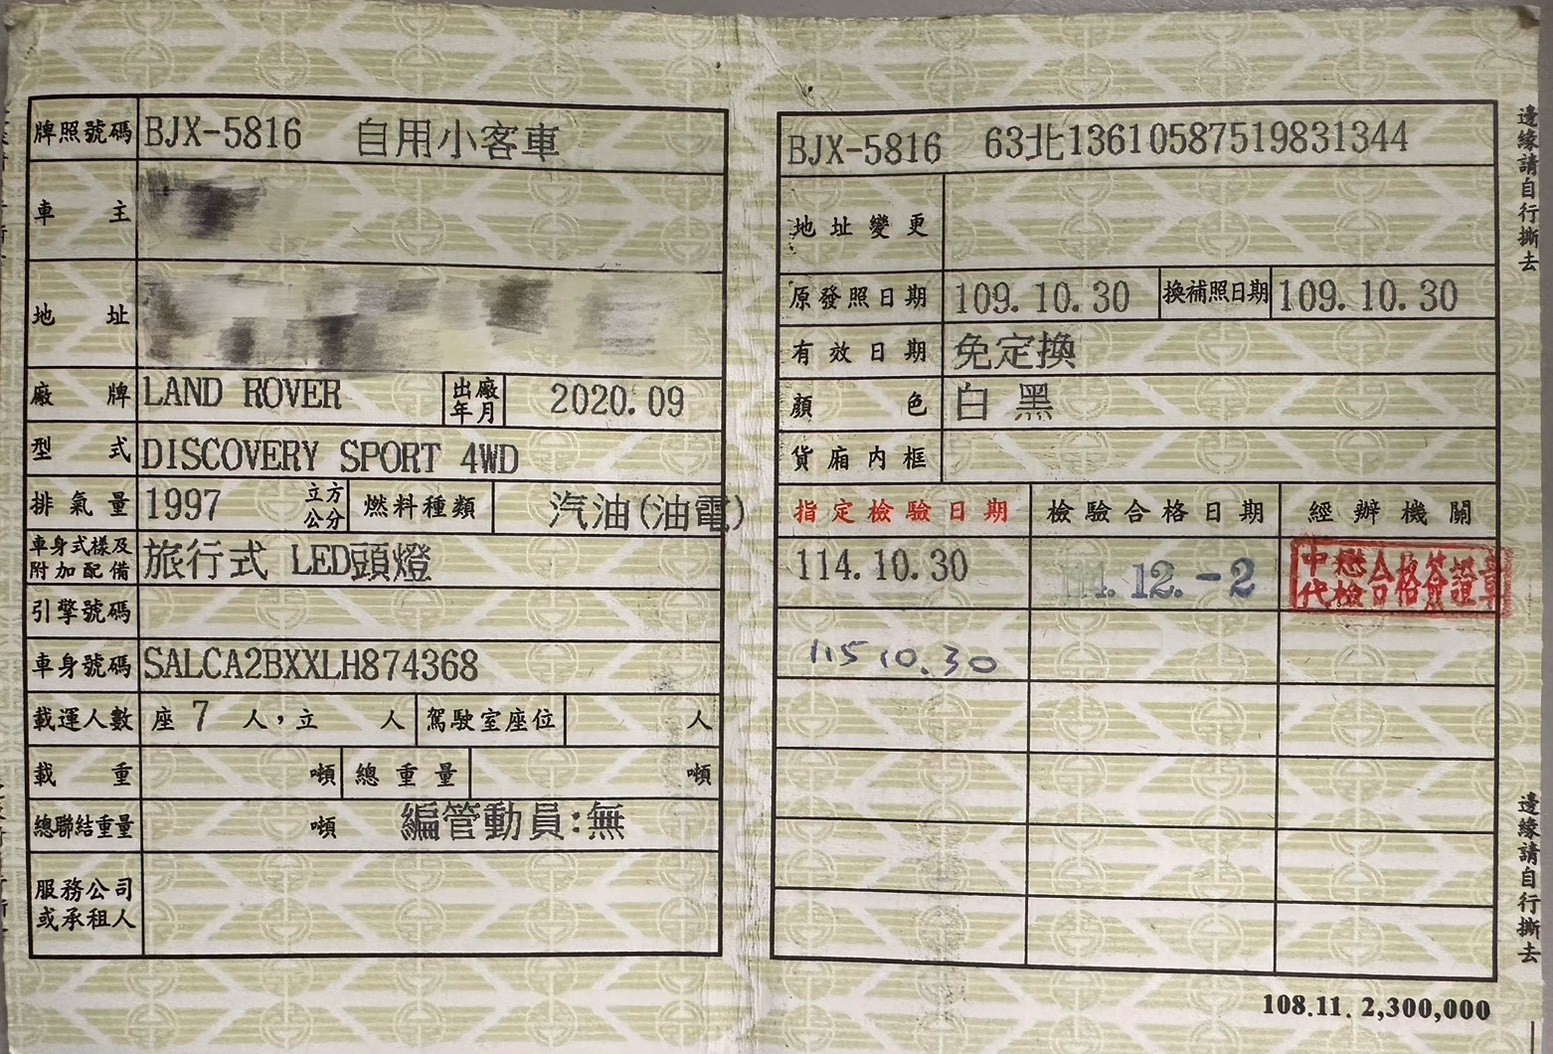 牌照號碼 BJX-5816 自用小客車
車主
地址
廠牌 LAND ROVER 出廠年月 2020.09
型式 DISCOVERY SPORT 4WD
排氣量 1997 立方公分 燃料種類 汽油(油電)
車身式樣及附加配備 旅行式 LED頭燈
引擎號碼
車身號碼 SALCA2BXXLH874368
載運人數 座 7 人,立 人 駕駛室座位 人
載重 噸 總重量 噸
總聯結重量 噸 編管動員:無
服務公司或承租人
BJX-5816 63北13610587519831344
地址變更
原發照日期 109.10.30 換補照日期 109.10.30
有效日期 免定換
顏色 白 黑
貨廂內框
指定檢驗日期 檢驗合格日期 經辦機關
114.10.30 114.12.-2 中懋合格簽證章
代檢合格
115 10.30
108.11. 2,300,000
邊緣請自行撕去
邊緣請自行撕去